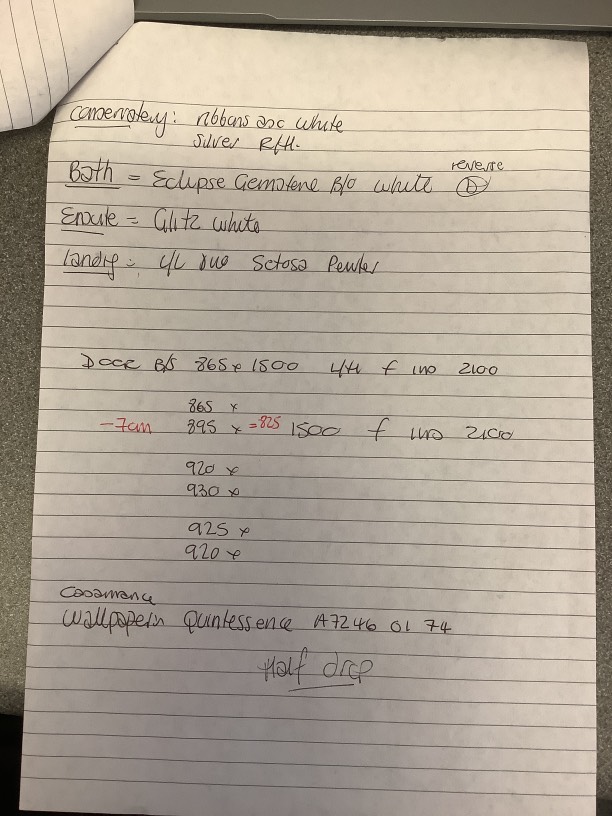 Conservatory: ribbons asc white
silver R/H.
reverse
Bath = Eclipse Gemstone B/O white
Ensuite = Glitz white
Landing = Setosa Pewter
Door B/S 865 x 1500 4/H f 1110 2100
865 x
-7cm 895 x =825 1500 f 1110 2100
920 x
930 x
925 x
920 x
Casamance
Wallpaper Quintessence A7246 01 74
Half drop